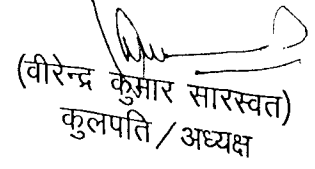 (वीरेन्द्र कुमार सारस्वत)
कुलपति / अध्यक्ष